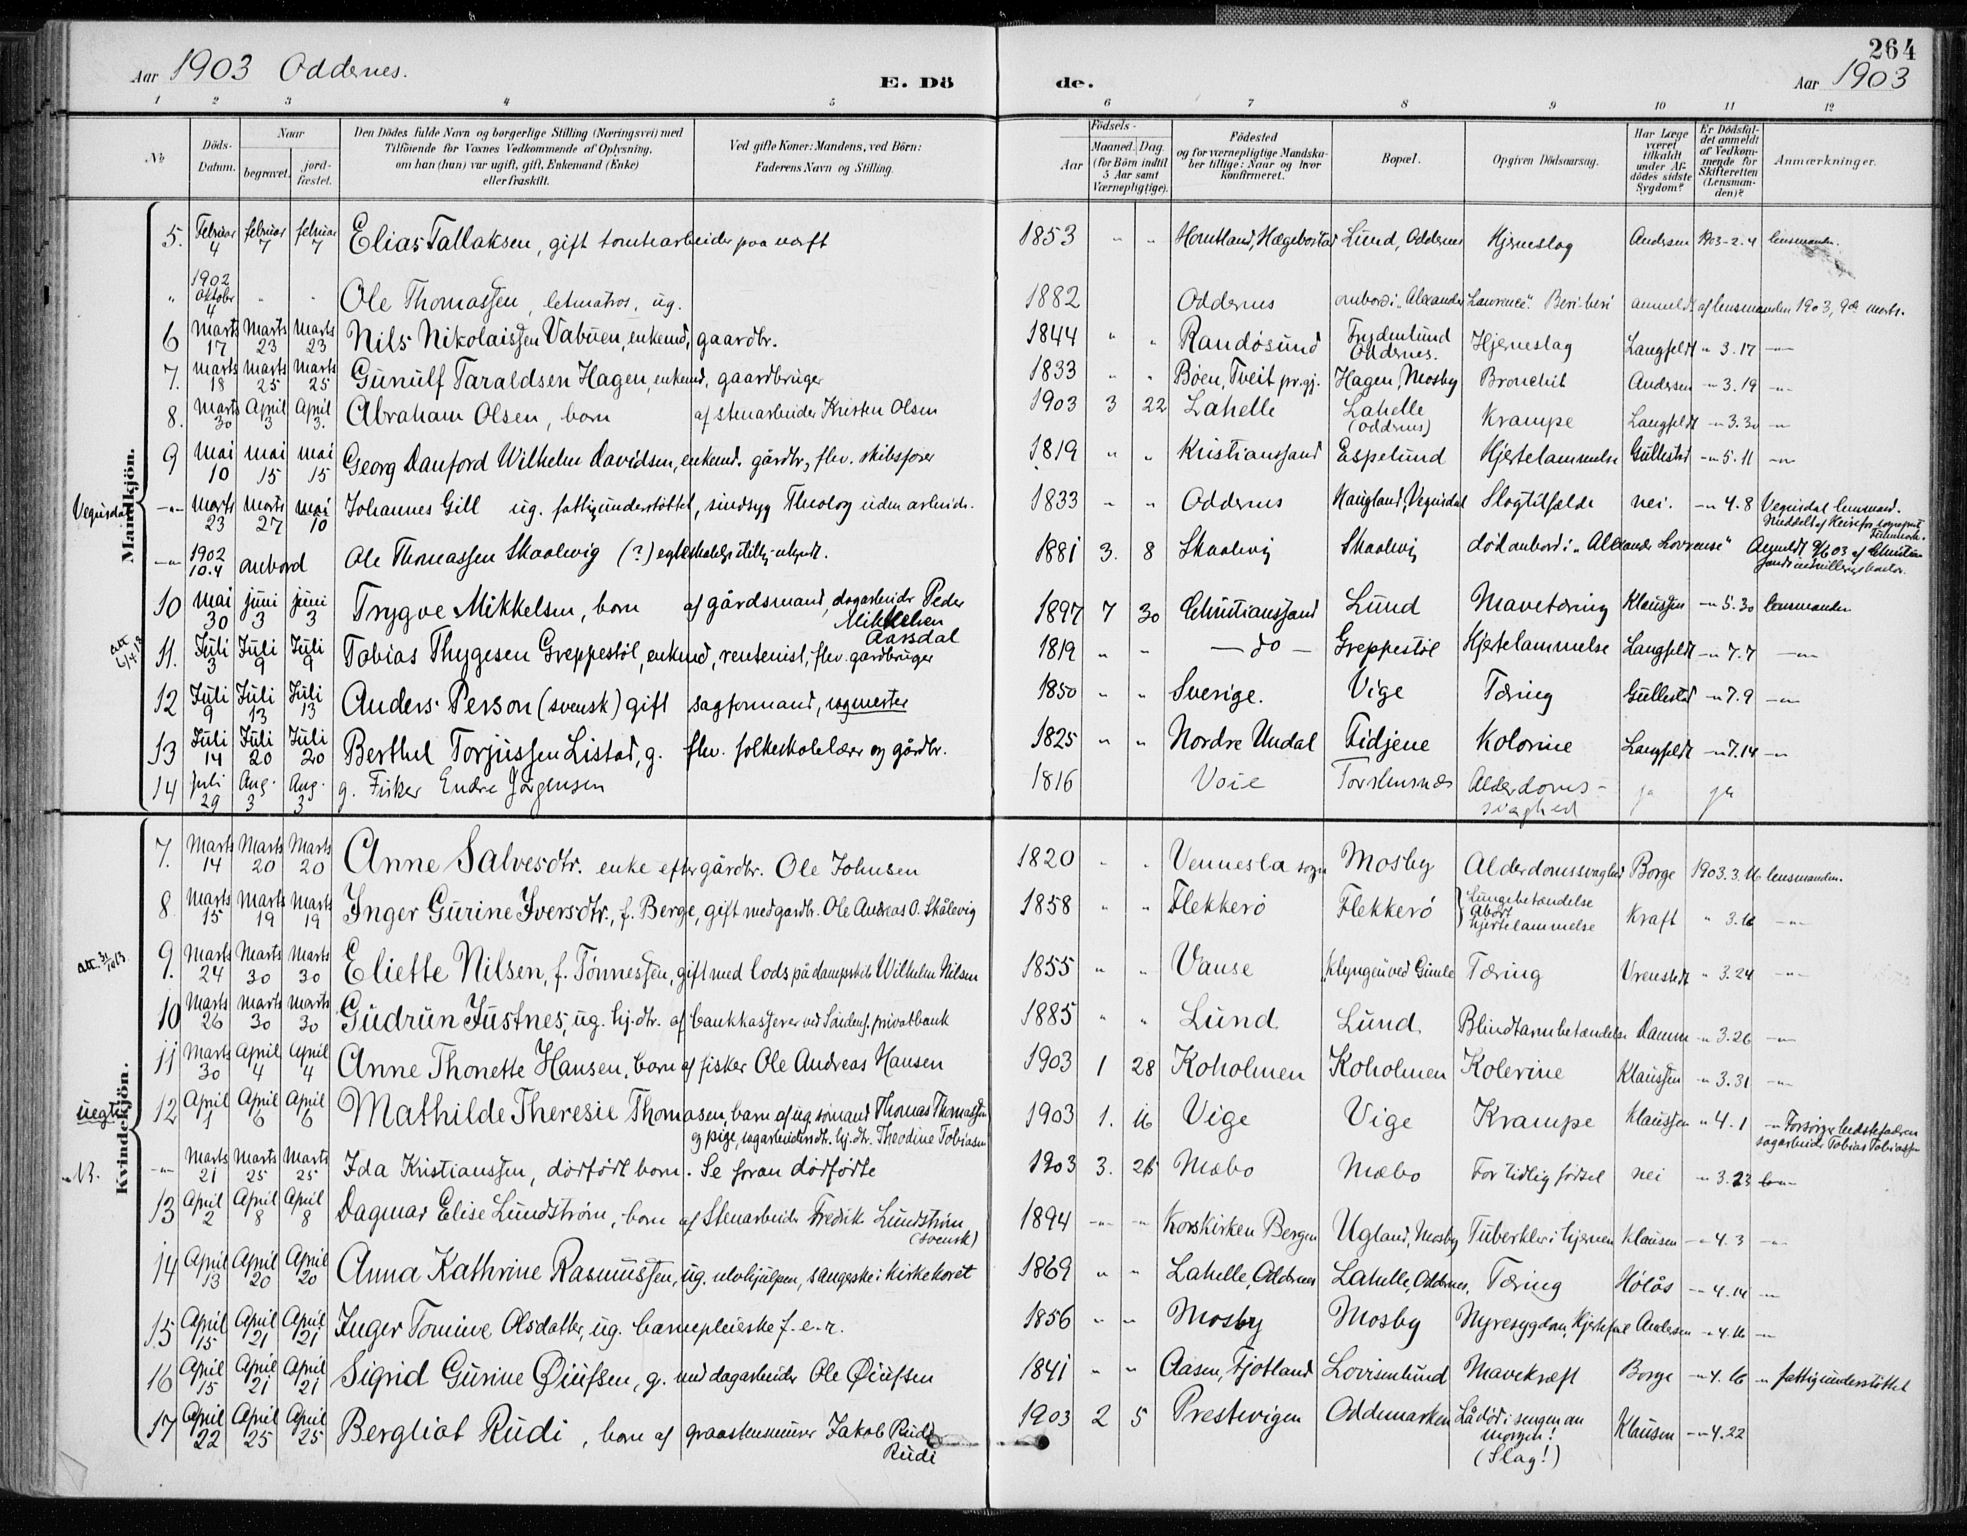 264
Aar 1903 Oddernes. E. Dö de. Aar 1903
1 2 3 4 5 6 7 8 9 10 11 12
No Döds-Datum. Naar begravet. jord-fæstet. Den Dödes fulde Navn og borgerlige Stilling (Næringsvei) med Tilföiende for Voxnes Vedkommende af Oplysning, om han (hun) var ugift, gift, Enkemand (Enke) eller fraskilt. Ved gifte Koner: Mandens, ved Börn: Faderens Navn og Stilling. Födsels- Aar Maaned. Dag. (for Börn indtil 5 Aar samt Værnepligtige). Födested og for værnepligtige Mandskaber tillige: Naar og hvor Konfirmeret. Bopæl. Opgiven Dödsaarsag. Har Læge været tilkaldt under Afdödes sidste Sygdom? Er Dödsfaldet anmeldt af Vedkommende for Skifteretten (Lensmanden)? Anmærkninger.
Mandkjön.
5. Februar 4 februar 7 februar 7 Elias Tallaksen, gift tomtearbeider paa verft 1853 " " Homtland, Hægebostad Lund, Oddernes Hjerneslag Andersen 1903-2-4 lensmanden.
" 1902 Oktober 4 " " Ole Thomassen, letmatros, ug. 1882 Oddernes ombord i "Alexander Lawrence". Beri-beri anmeldt af lensmanden 1903, 9de marts.
6 Marts 17 Marts 23 Marts 23 Nils Nikolaissen Vabuen, enkemd, gaardbr. 1844 " " Randøsund Frydenlund Oddernes. Hjerneslag Langfeldt " 3.17 —"—
7. Marts 18 Marts 25 Marts 25 Gunulf Taraldsen Hagen, enkemd, gaardbruger 1833 " " Bøen, Tveit pr.gj. Hagen, Mosby Bronchit Andersen —" 3.19 —"—
8. Marts 30 April 3 April 3. Abraham Olsen, barn af stenarbeider Kristen Olsen 1903 3 22 Lahelle Lahelle (Oddernes) Krampe Langfeldt —" 3.30 —"
9 Mai 10 mai 15 mai 15 Georg Danford Wilhelm Davidsen, enkemd. gårdbr, flev. skibsfører 1819 " " Kristianssand Espelund Hjertelammelse Gullestad —" 5.11 —"—
Vegusdal —"— Marts 23 Marts 27 mai 10 Johannes Gill ug. fattigunderstøttet, sindsyg Theolog uden arbeide. 1833 " " Oddernes Haugland, Vegusdal Slagtilfælde nei. —" 4.8 Vegusdal lensmand.
—"— 1902 10.4 ombord Ole Thomassen Skaalevig (?) 1881 3. 8 Skaalevig Skaalevig død ombord i "Alexander Lovrense" Anmeldt 9/6 03 af
10 Mai 30 juni 3 juni 3 Trygve Mikkelsen, barn af gårdsmand, dagarbeider Peder Mikkelsen Aarsdal 1897 7 30 Christianssand Lund Mavetæring Klaussen —" 5.30 lensmanden
11. Juli 3 Juli 9 Juli 9 Tobias Thygesen Greppestøl, enkemd, rentenist, flev. gardbruger 1819 " " — do — Greppestøl Hjertelammelse Langfeldt —" 7.7 —"—
12 Juli 9 Juli 13 Juli 13 Anders Person (svensk) gift sagformand, sagmester 1850 " " Sverige. Vige Tæring Gullestad —" 7.9 —"—
13 Juli 14 Juli 20 Juli 20 Berthel Torjussen Listad, g. flev. folkeskolelærer og gårdbr. 1825 " " Nordre Undal Fidjene Kolerine Langfeldt —" 7.14 —"
14 juli 29 Aug. 3 Aug. 3 g. Fisker Endre Jørgensen 1816 Voie Torshusnæs Alderdoms-svaghed ja ja
Kvindekjön.
7. Marts 14 Marts 20 Marts 20 Anne Salvesdtr. enke efter gårdbr. Ole Johnsen 1820 " " Vennesla sogn Mosby Alderdomssvaghed Borge 1903.3.16 lensmanden.
8 Marts 15 Marts 19 Marts 19 Inger Gurine Iversdtr., f. Berge, gift med gardbr. Ole Andreas O. Skålevig 1858 " " Flekkerø Flekkerø Lungebetændelse Abort Hjertelammelse Kraft " 3.16 —"—
att. 31/10 13. 9. Marts 24 Marts 30 Marts 30 Eliette Nilsen, f. Tønnessen, gift med lods på dampskib Wilhelm Nilsen 1855 " " Vanse Klyngen ved Gimle Tæring Vrenstedt " 3.24 —"—
10 Marts 26 Marts 30 Marts 30 Gudrun Justnes, ug. hj.dtr. af bankkasserer ved Søndenf. privatbank 1885 " " Lund Lund Blindtarmbetændelse Damm —" 3.26 —"—
11 Marts 30 April 4 April 4 Anne Thonette Hansen, barn af fisker Ole Andreas Hansen 1903 1 28 Koholmen Koholmen Kolerine Klaussen —" 3.31 —"—
uegte 12 April 1 April 6 April 6 Mathilde Theresie Thomasen, barn af ug. sømand Thomas Thomassen og pige, sagarbeiderdtr. hj.dtr. Theodine Tobiasen 1903 1. 16 Vige Vige Krampe Klaussen " 4.1 —" Forsørger bedstefaderen sagarbeider Tobias Tobiassen
NB. —"— Marts 21 Marts 25 Marts 25 Ida Kristianssen, dødfødt barn. Se foran dødfødte 1903 3. 21 Mæbo Mæbo For tidlig fødsel nei —" 3.23
13 April 2 April 8 April 8 Dagmar Elise Lundstrøm, barn af Stenarbeider Fredrik Lundstrøm (svensk) 1894 —"— —"— Korskirken Bergen Ugland, Mosby Tuberkler i hjernen Klausen —" 4.3 —"—
14 April 13 April 20 April 20 Anna Kathrine Rasmussen, ug. selvhjulpen, sangerske i kirkekoret 1869 " " Lahelle, Oddernes Lahelle, Oddernes, Tæring Hølås —" 4.14 —"
15 April 15 April 21 April 21 Inger Tomine Olsdatter, ug. barnepleierske f.e.r. 1856 " " Mosby Mosby Nyresygdom, Hjertefeil Andersen —" 4.16 —"
16 April 15 April 21 April 21 Sigrid Gurine Øiufsen, g. med dagarbeider Ole Øiufsen 1841 " " Aasen, Fjotland Lovisenlund Mavekræft Borge —" 4.16 —" fattigunderstøttet
17 April 22 April 25 April 25 Bergliot Rudi, barn af graastensmurer Jakob Rudi Rudi 1903 2 5 Prestevigen Oddemarken Lå død i sengen om morgen! (Slag!) Klausen —" 4.22